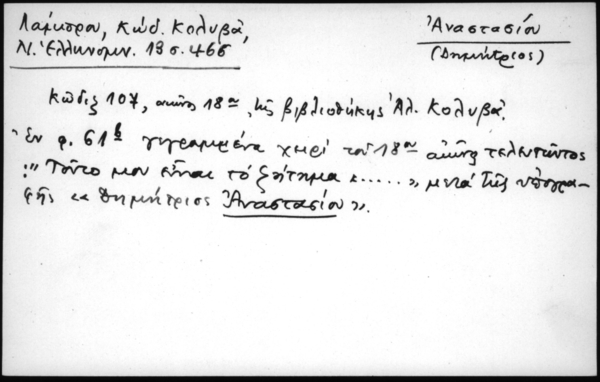 Λάμπρου, Κώδ. Κολυβᾶ,
Ν. Ἑλληνομν. 13 σ. 466
Ἀναστασίου
(Δημήτριος)
Κῶδιξ 107, αἰῶνος 18ου, τῆς βιβλιοθήκης Ἀλ. Κολυβᾶ.
"Ἐν φ. 61β γεγραμμένα χειρὶ τοῦ 18ου αἰῶνος τελευτῶντος
:" Τοῦτο μου εἶναι τὸ ζήτημα κ....." μετὰ τῆς ὑπογρα-
φῆς «Δημήτριος Ἀναστασίου».